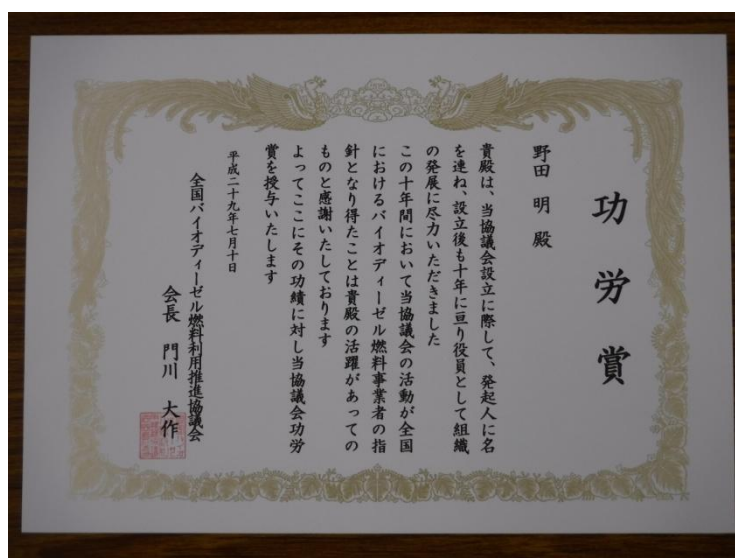 功労賞
野田 明 殿
貴殿は、当協議会設立に際して、発起人に名
を連ね、設立後も十年に亘り役員として組織
の発展に尽力いただきました
この十年間において当協議会の活動が全国
におけるバイオディーゼル燃料事業者の指
針となり得たことは貴殿の活躍があっての
ものと感謝いたしております
よってここにその功績に対し当協議会功労
賞を授与いたします
平成二十九年七月十日
全国バイオディーゼル燃料利用推進協議会
会長 門川 大作